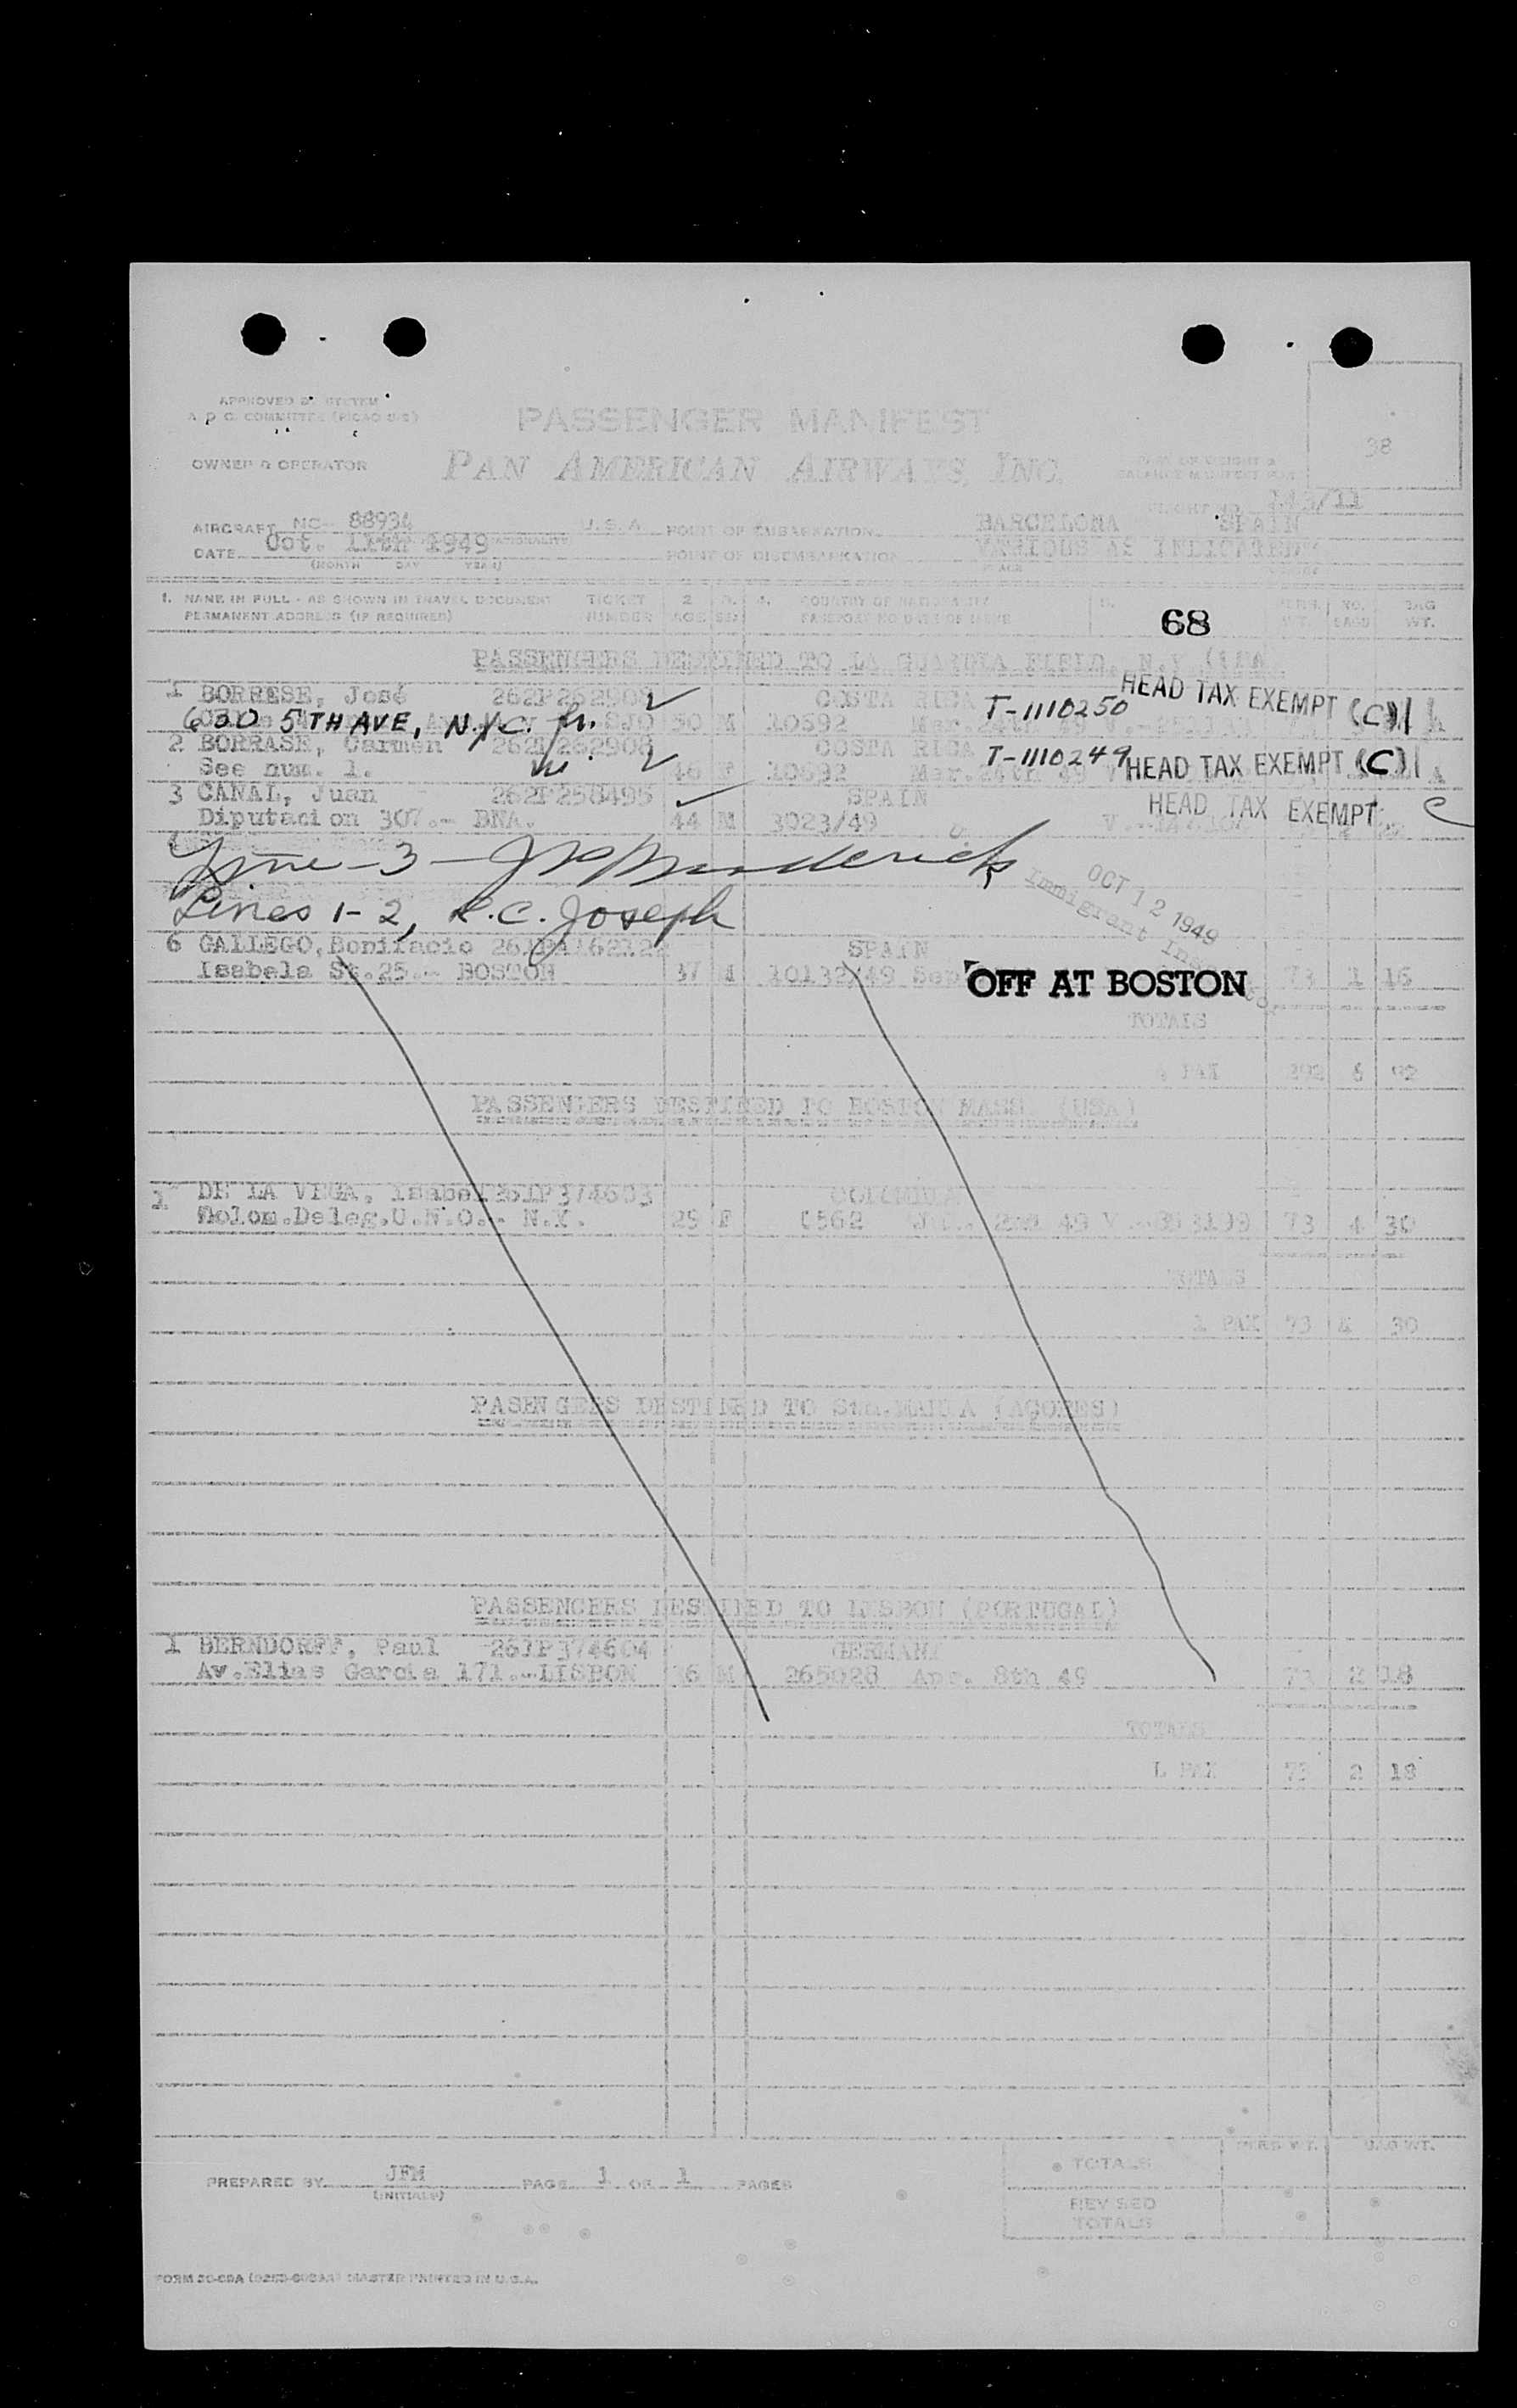 APPROVED BY SYSTEM
A P C COMMITTEE (PICAO 3-2)
PASSENGER MANIFEST
38
OWNER OR OPERATOR PAN AMERICAN AIRWAYS, INC.
143/11
AIRCRAFT NC- 88934 U.S.A. POINT OF EMBARKATION BARCELONA SPAIN
DATE Oct. 11th 1949 POINT OF DISEMBARKATION VARIOUS AS INDICATED
(MONTH DAY YEAR) PLACE
1. NAME IN FULL - AS SHOWN IN TRAVEL DOCUMENT TICKET 2 3. 4. COUNTRY OF NATIONALITY 5. PERS. NO. BAG
PERMANENT ADDRESS (IF REQUIRED) NUMBER AGE SEX PASSPORT NO DATE OF ISSUE 68 WT. BAGS WT.
PASSENGERS DESTINED TO LA GUARDIA FIELD, N.Y. (USA
1 BORRESE, José 262P262908 COSTA RICA T-1110250 HEAD TAX EXEMPT (C)
630 5TH AVE, N.Y.C. 50 M 10592 Mar.24th 49
2 BORRASE, Carmen 262P262908 COSTA RICA T-1110249 HEAD TAX EXEMPT (C)
See num. 1. 46 F 10692 Mar.24th 49
3 CANAL, Juan 262P258495 SPAIN HEAD TAX EXEMPT C
Diputacion 307.- BNA. 44 M 3023/49
Line-3-
OCT 12 1949
Immigrant
Lines 1-2, R.C. Joseph
6 GALLEGO, Bonifacio SPAIN
Isabela St.25.- BOSTON 37 M 10132/49 Sep OFF AT BOSTON 73 1 16
TOTALS
4 PAX 292 6 92
PASSENGERS DESTINED TO BOSTON MASS. (USA)
1 DE LA VEGA, Isabel 261P374603 COLOMBIA
Colom.Deleg.U.N.O.- N.Y. 29 F 0562 49 V. 73 4 30
TOTALS
1 PAX 73 4 30
PASENGERS DESTINED TO Sta.MARIA (AÇORES)
PASSENGERS DESTINED TO LISBON (PORTUGAL)
1 BERNDORFF, Paul 261P374604 GERMANY
Av.Elias Garcia 171.-LISBON 36 M 265028 Apr. 8th 49 73 2 18
TOTALS
1 PAX 73 2 18
PERS WT. BAG WT.
TOTALS
PREPARED BY JFM PAGE 1 OF 1 PAGES
(INITIALS)
REVISED
TOTALS
MASTER PRINTED IN U.S.A.